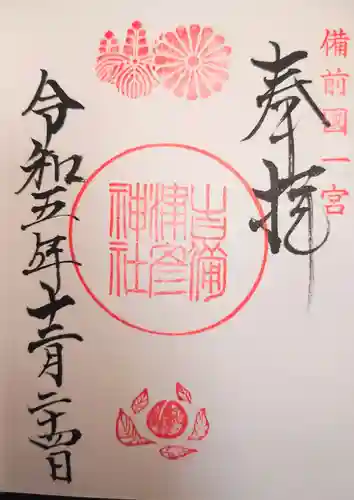 備前國一宮
奉拝
吉備
津彦
神社
令和五年十二月二十四日